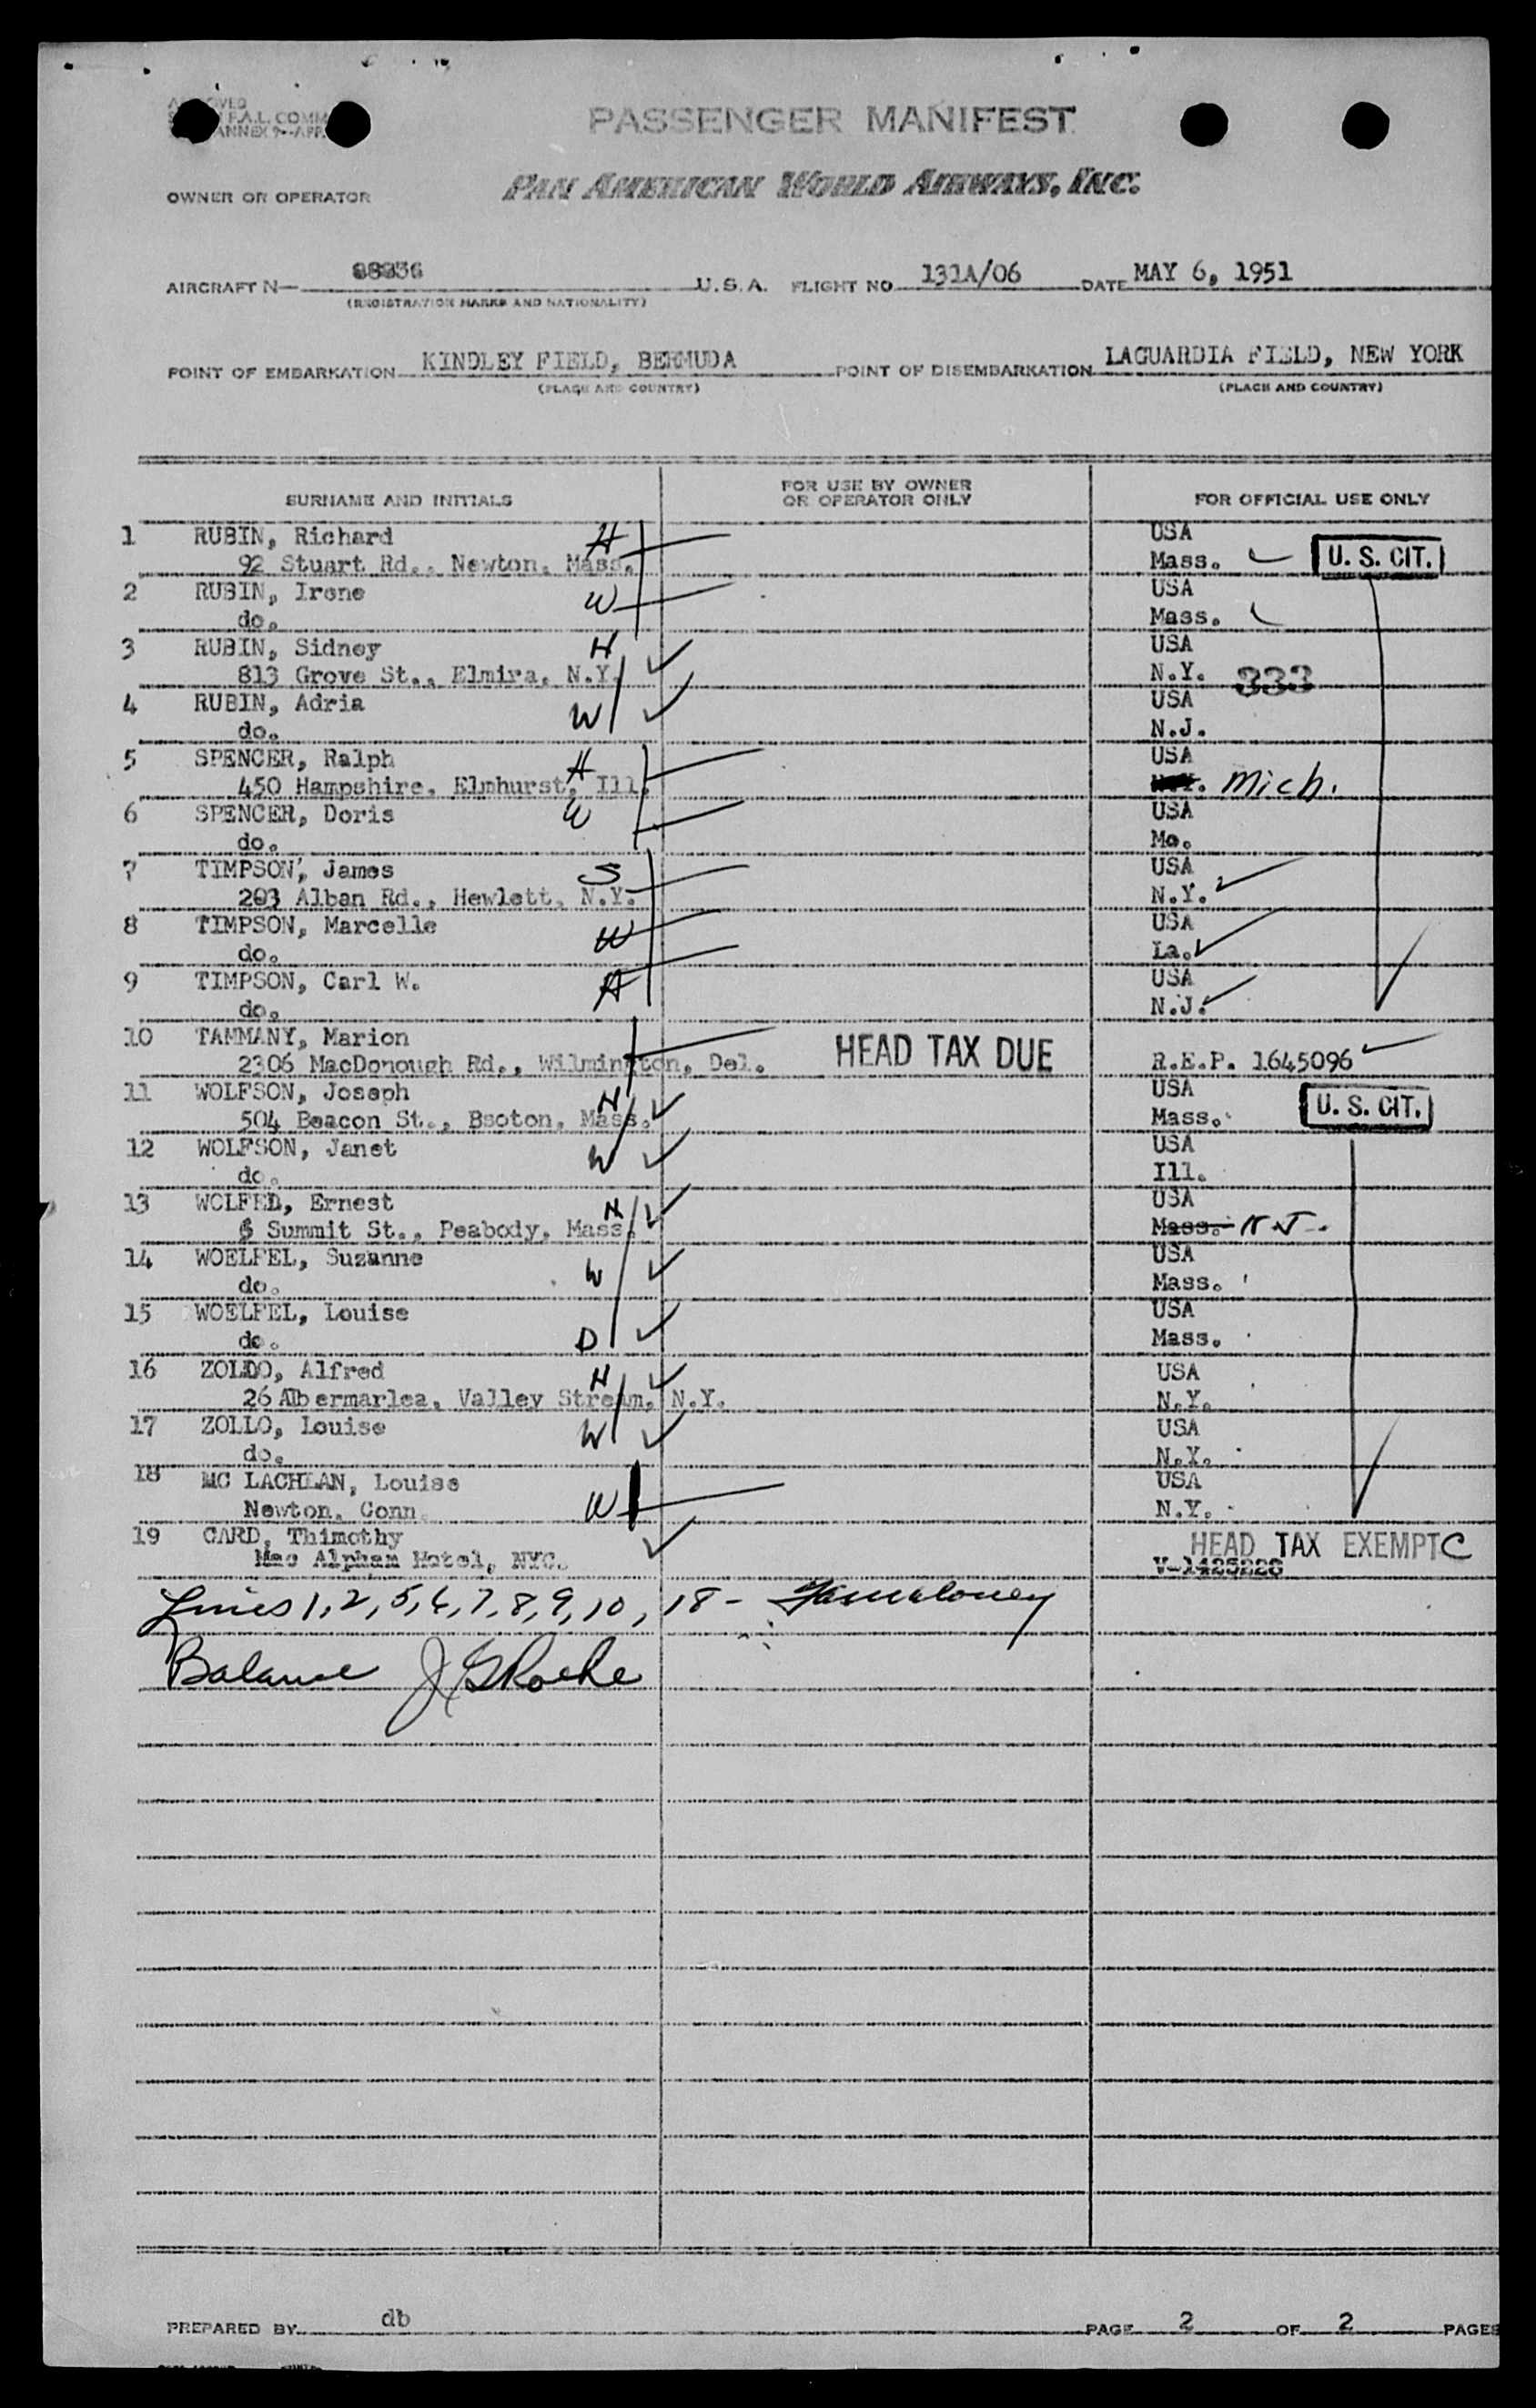 PASSENGER MANIFEST
PAN AMERICAN WORLD AIRWAYS, INC.
OWNER OR OPERATOR
AIRCRAFT N- U.S.A. FLIGHT NO. 131A/06 DATE MAY 6, 1951
(REGISTRATION MARKS AND NATIONALITY)
POINT OF EMBARKATION KINDLEY FIELD, BERMUDA POINT OF DISEMBARKATION LAGUARDIA FIELD, NEW YORK
(PLACE AND COUNTRY) (PLACE AND COUNTRY)
SURNAME AND INITIALS FOR USE BY OWNER OR OPERATOR ONLY FOR OFFICIAL USE ONLY
1 RUBIN, Richard H USA
92 Stuart Rd., Newton, Mass. Mass. U. S. CIT.
2 RUBIN, Irene W USA
do. Mass.
3 RUBIN, Sidney H USA
813 Grove St., Elmira, N.Y. N.Y. 333
4 RUBIN, Adria W USA
do. N.J.
5 SPENCER, Ralph H USA
450 Hampshire, Elmhurst, Ill. Mich.
6 SPENCER, Doris W USA
do. Mo.
7 TIMPSON, James S USA
203 Alban Rd., Hewlett, N.Y. N.Y.
8 TIMPSON, Marcelle W USA
do. La.
9 TIMPSON, Carl W. H USA
do. N.J.
10 TAMMANY, Marion
2306 MacDonough Rd., Wilmington, Del. HEAD TAX DUE R.E.P. 1645096
11 WOLFSON, Joseph H USA
504 Beacon St., Bsoton, Mass. Mass. U. S. CIT.
12 WOLFSON, Janet W USA
do. Ill.
13 WOLFEL, Ernest H USA
6 Summit St., Peabody, Mass. Mass. N J.
14 WOELFEL, Suzanne W USA
do. Mass.
15 WOELFEL, Louise USA
do. D Mass.
16 ZOLDO, Alfred H USA
26 Albermarlea, Valley Stream, N.Y. N.Y.
17 ZOLLO, Louise W USA
do. N.Y.
18 MC LACHLAN, Louise USA
Newton, Conn. W N.Y.
19 CARD, Thimothy HEAD TAX EXEMPT C
Mac Alpham Hotel, NYC. V-1425228
Lines 1, 2, 5, 6, 7, 8, 9, 10, 18 -
Balance J G Roche
PREPARED BY db PAGE 2 OF 2 PAGES